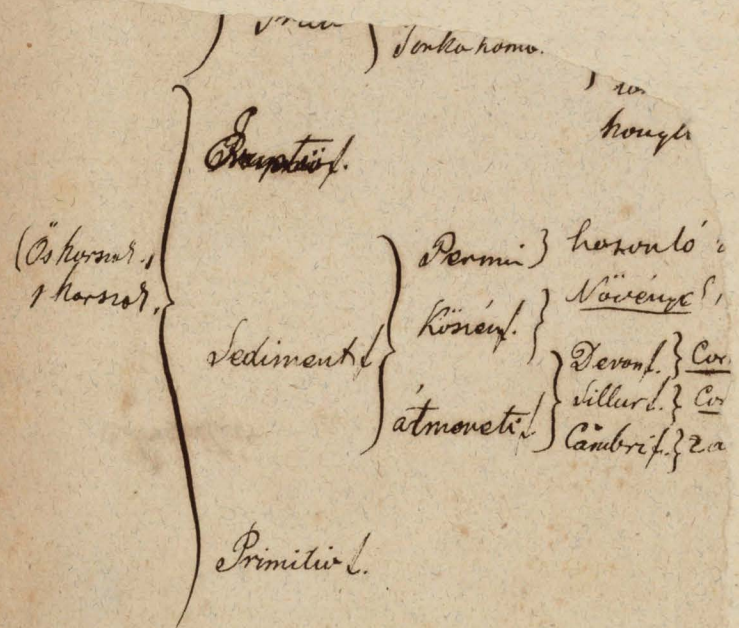 homo.
Eruptiv f.
(Ős korszak.
1 korszak.
Sediment f.
Permi } hasonló
Kőszén f. } Növénye
átmeneti f.
Devon f. } Cor
Sillur f. } Co
Cambri f. } za
Primitiv f.